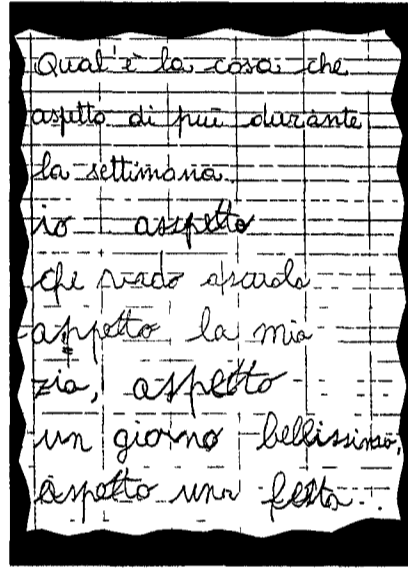 Qual'è la cosa che
aspetto di più durante
la settimana.
io asspetto
che vado ascuola
appetto la mia
zia, aspetto
un giorno bellissimo,
aspetto una festa.